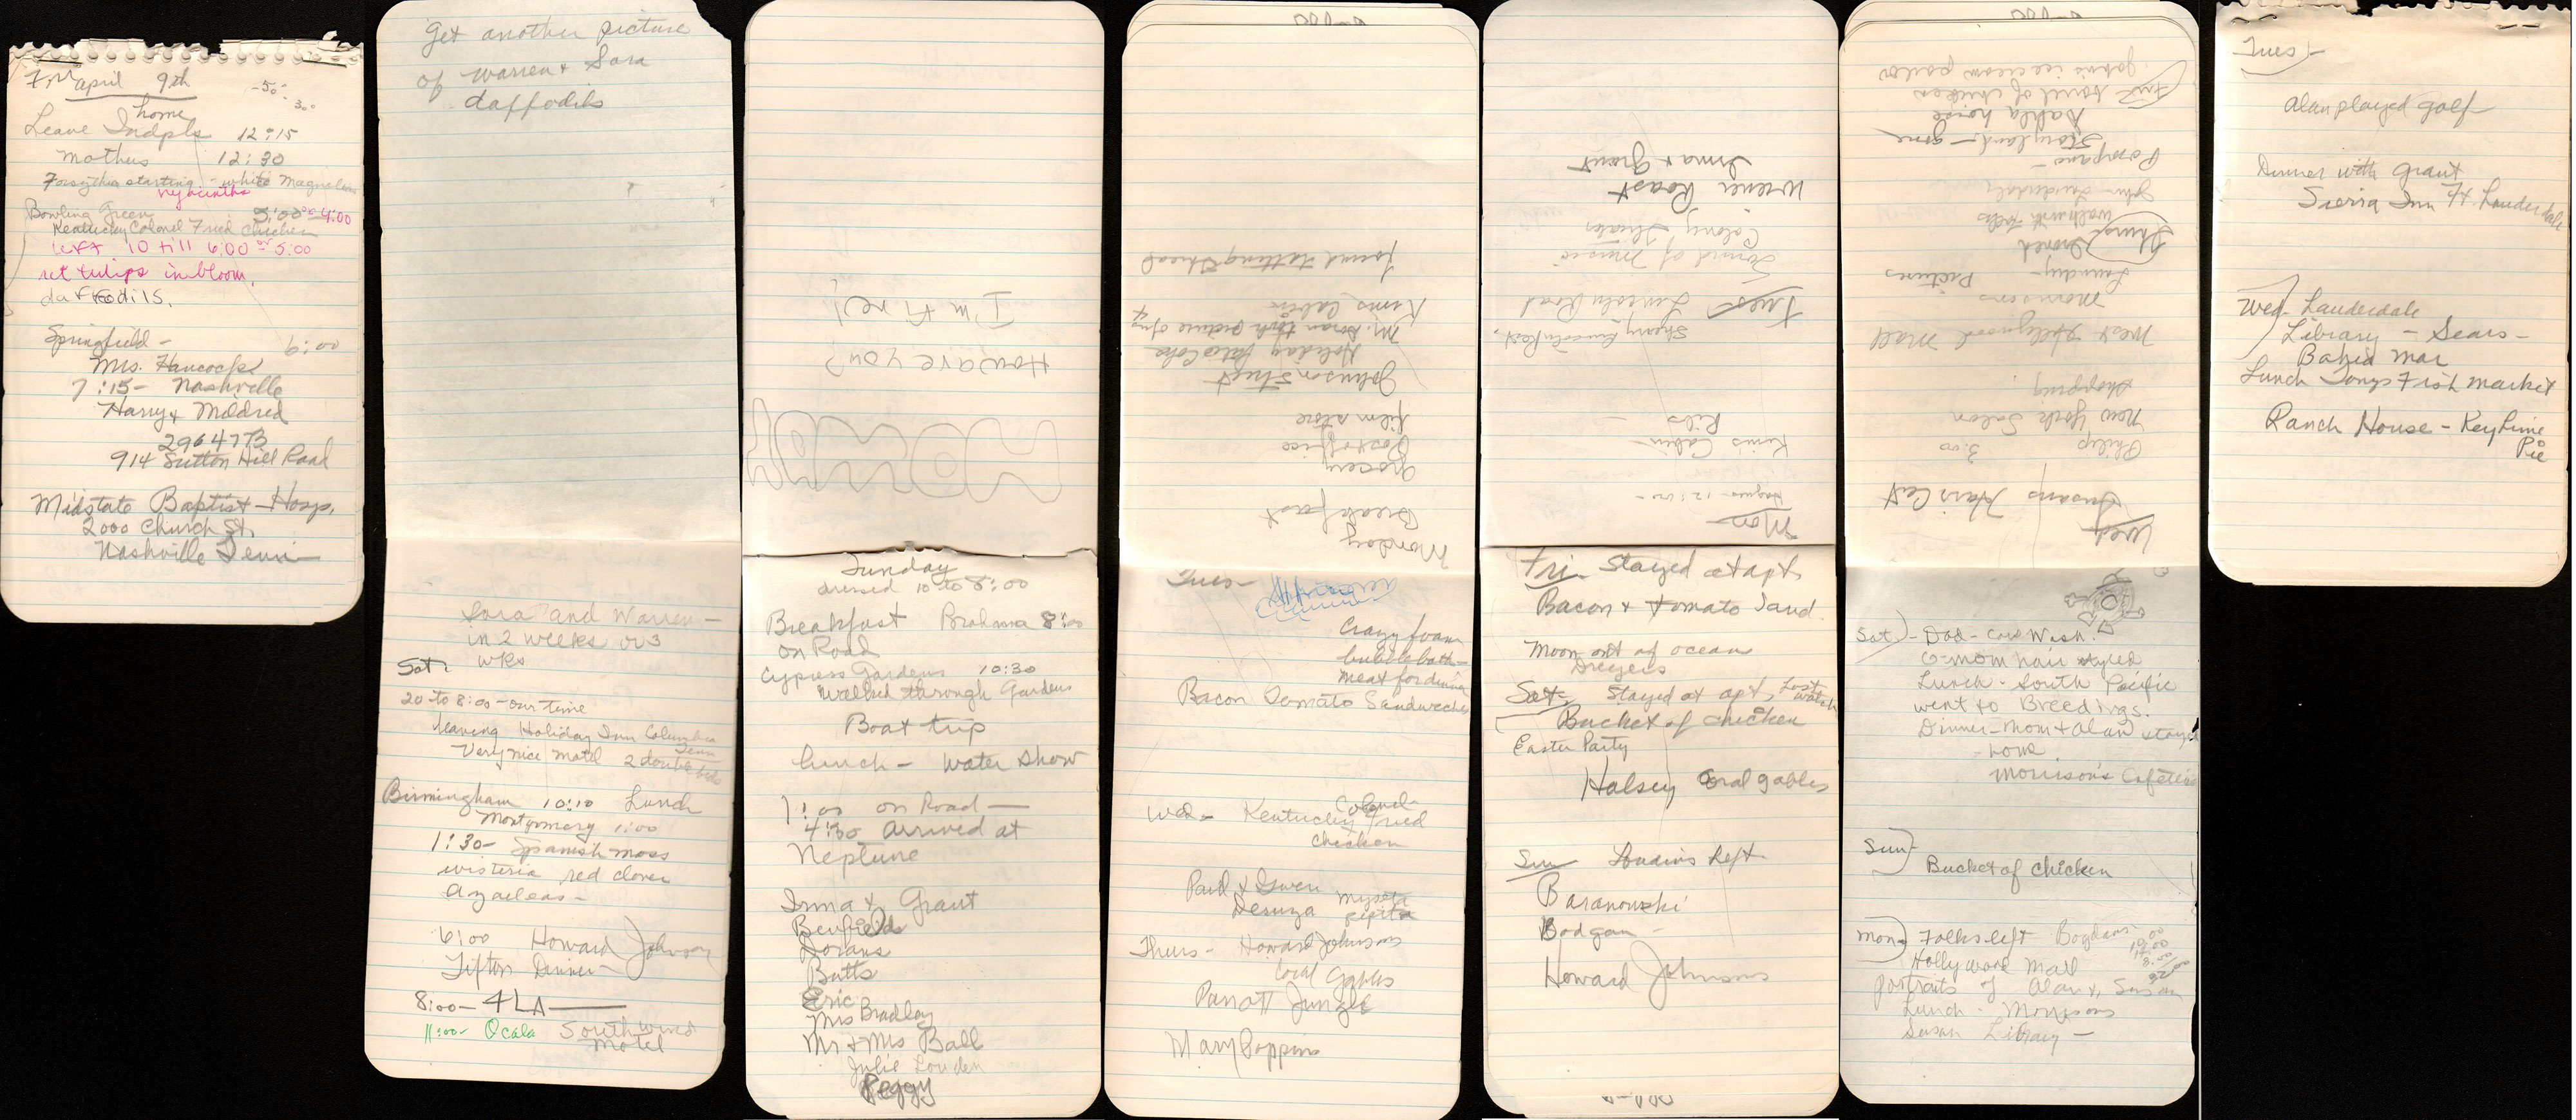 Fri April 9th
-50
300
home
Leave Indpls 12:15
Mothers 12:30
Forsythia starting - white Magnolias
hyacinths
Bowling Green 5:00 or 4:00
Kentucky Colonel Fried Chicken
left 10 till 6:00 or 5:00
ret tulips in bloom.
daffodils.
Springfield - 6:00
Mrs. Hancocks
7:15 - Nashville
Harry & Mildred
914 Sutton Hill Road
Midstate Baptist Hosp.
2000 Church St.
Nashville Tenn
Get another picture
of Warren & Sara
daffodils
Sara and Warren -
in 2 weeks or 3
wks
Sat.
20 to 8:00 - our time
leaving Holiday Inn Columbia
Tenn
Very nice motel 2 double beds
Birmingham 10:10 Lunch
Montgomery 1:00
1:30 - Spanish moss
wisteria red clover
azaeleas -
6:00 Howard Johnson
Tifton Dinner -
8:00 - 4 LA
11:00 - Ocala Southwind
Motel
How are you?
I'm fine!
Sunday
dressed 10 to 8:00
Breakfast Brahma 8:00
on Road
Cypress Gardens 10:30
Walked through Gardens
Boat trip
Lunch - Water Show
1:00 on Road -
4:30 arrived at
Neptune
Irma & Grant
Benfields
Dorans
Butts
Eric
Mrs Bradley
Mr & Mrs Ball
Julie Louden
Peggy
Monday
Breakfast
Grocery
Post office
film store
Johnson Street
Holiday
M. Doran took picture of
Kims Cabin
found tatting thread
Tues -
Crazy foam
bubble bath -
meat for dinner
Bacon Tomato Sandwiches
Wed - Kentucky Colonel Fried
Chicken
Paul & Gwen
Desuza
Thurs - Howard Johnson
Coral Gables
Parrott Jungle
Mary Poppins
Mon
Kim's Cabin -
Ribs
Tues Lincoln Road
Sound of Music
Colony Theater
Wiener Roast
Irma & Grant
Fri - Stayed at apt.
Bacon & Tomato Sand.
Moon out of ocean
Dreyers
Sat. Stayed at apt. Lost
watch
Bucket of chicken
Easter Party
Halsey Coral gables
Sun Loudins left
Baranowski
Bodgan -
Howard Johnson
Wed
Susans Hair Cut
Philip 3:00
New York Salon
Shopping
West Hollywood Mall
Morrisons
Laundry - Pictures
Thurs
walk with folks
Pompano -
Storyland - gone
Dahla house
Fri barrel of chicken
John's ice cream parlor
Sat - Dad - Car Wash.
G-mom hair styled
Lunch - South Pacific
went to Breedings.
Dinner - Mom & Alan stayed
home
Morrison's Cafeteria
Sun
Bucket of chicken
Mon Folks left Bogdans
Hollywood Mall
portraits of Alan & Susan
Lunch - Morrisons
Susan Library -
Tues -
Alan played golf
Dinner with Grant
Sierra Inn Ft. Lauderdale
Wed - Lauderdale
Library - Sears -
Bahia Mar
Lunch Tonys Fish Market
Ranch House - Key Lime
Pie